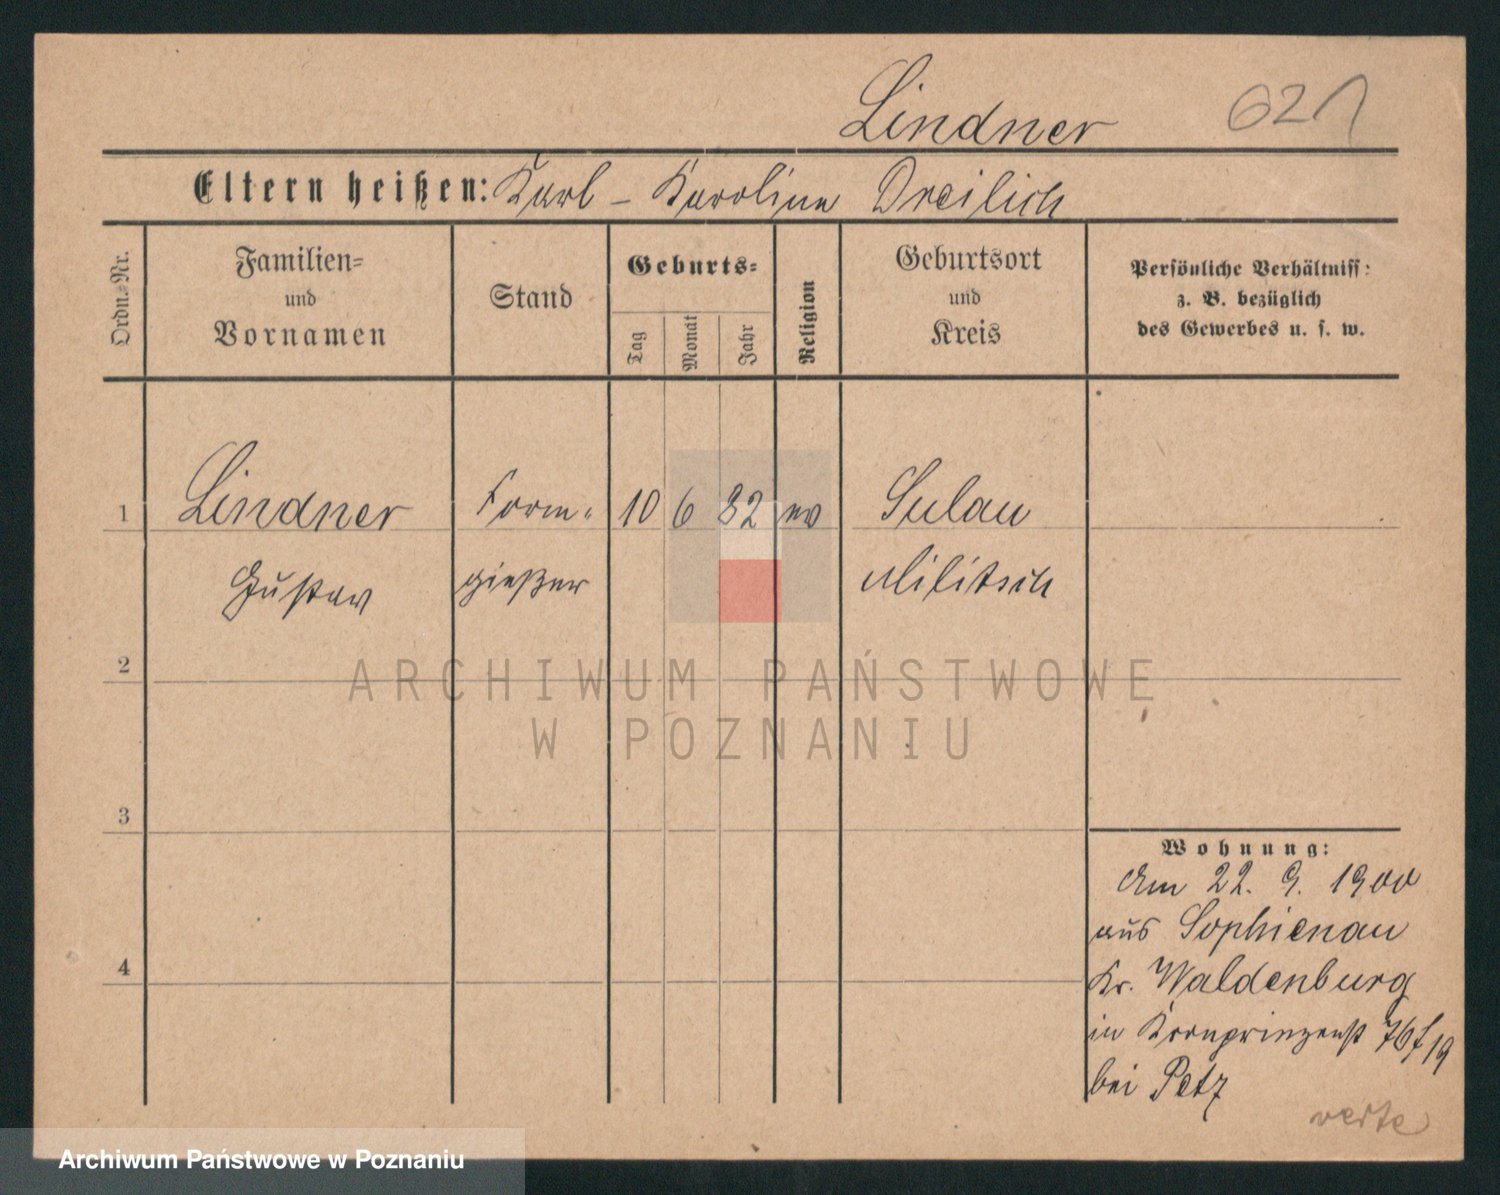 Lindner 621
Eltern heißen: Karl - Karoline Dreilich
Ordn.-Nr.
Familien-
und
Vornamen
Stand
Geburts-
Tag
Monat
Jahr
Religion
Geburtsort
und
Kreis
Persönliche Verhältniss:
z. B. bezüglich
des Gewerbes u. s. w.
1 Lindner Form- 10 6 82 ev Sulau
Gustav gießer Militsch
2
3
4
Wohnung:
Am 22. 9. 1900
aus Sophienau
Kr. Waldenburg
in Kronprinzenst 76f 19
bei Petz
verte
ARCHIWUM PAŃSTWOWE
W POZNANIU
Archiwum Państwowe w Poznaniu